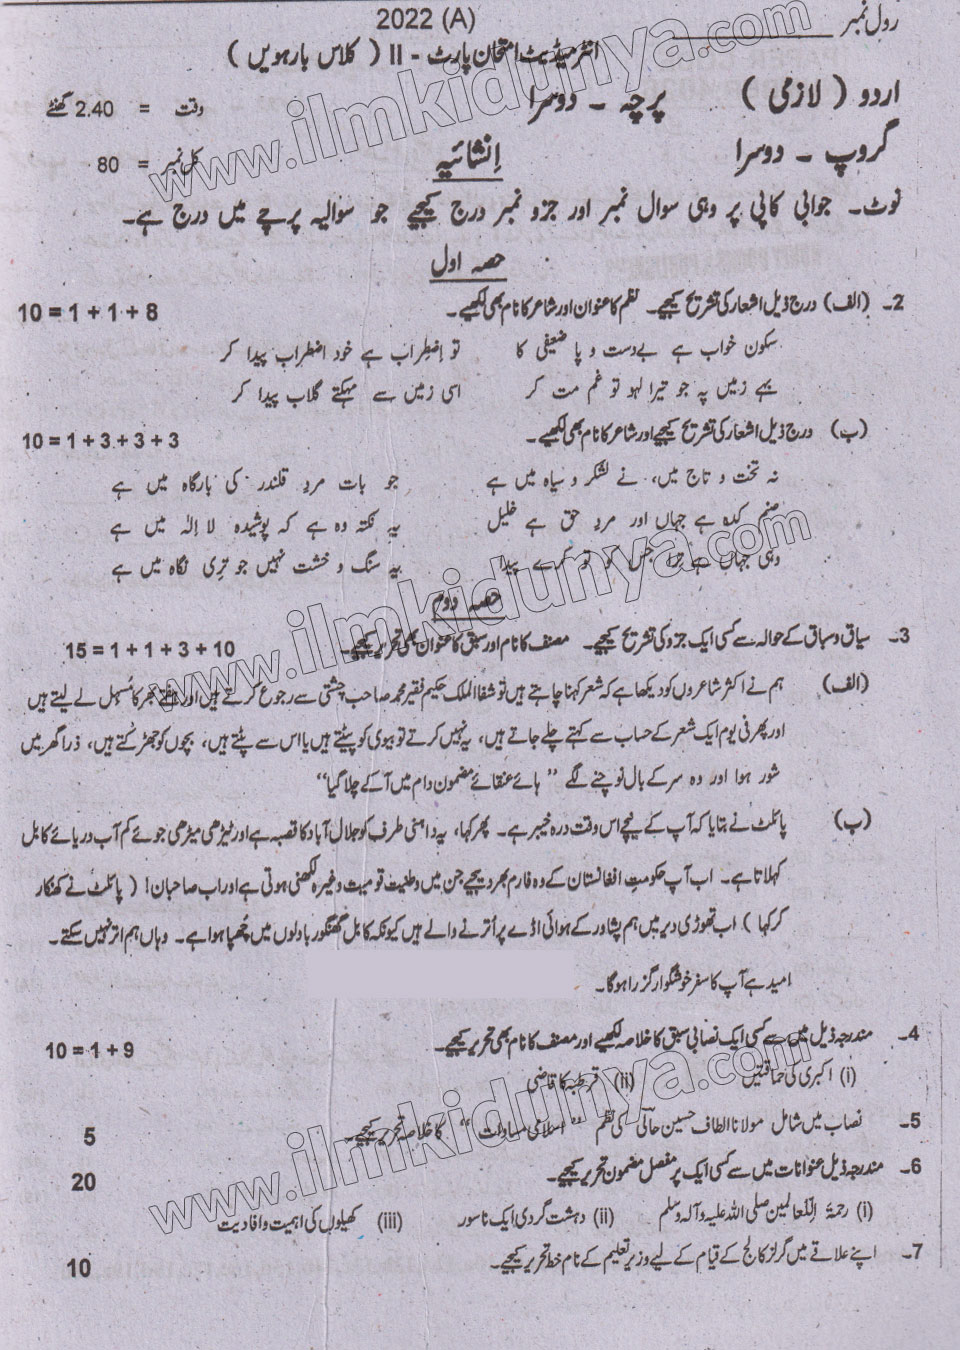 2022 (A)
رول نمبر
انٹرمیڈیٹ امتحان پارٹ - II ( کلاس بارہویں )
اردو ( لازمی ) پرچہ ۔ دوسرا
وقت = 2.40 گھنٹے
گروپ ۔ دوسرا
اِنشائیہ
کل نمبر = 80
نوٹ۔ جوابی کاپی پر وہی سوال نمبر اور جزو نمبر درج کیجیے جو سوالیہ پرچے میں درج ہے۔
حصہ اول
2۔ (الف) درج ذیل اشعار کی تشریح کیجیے۔ نظم کا عنوان اور شاعر کا نام بھی لکھیے۔ 10 = 1 + 1 + 8
سکون خواب ہے بےدست و پا ضعیفی کا تو اِضطراب ہے خود اضطراب پیدا کر
بہے زمیں پہ جو تیرا لہو تو غم مت کر اسی زمیں سے مہکتے گلاب پیدا کر
(ب) درج ذیل اشعار کی تشریح کیجیے اور شاعر کا نام بھی لکھیے۔ 10 = 1 + 3 + 3 + 3
نہ تخت و تاج میں، نے لشکر و سپاہ میں ہے جو بات مردِ قلندر کی بارگاہ میں ہے
صنم کدہ ہے جہاں اور مردِ حق ہے خلیل یہ نکتہ وہ ہے کہ پوشیدہ لا اِلٰہ میں ہے
وہی جہاں ہے ترا جس کو تو کرے پیدا یہ سنگ و خشت نہیں جو تِری نگاہ میں ہے
حصہ دوم
3۔ سیاق و سباق کے حوالہ سے کسی ایک جزو کی تشریح کیجیے۔ مصنف کا نام اور سبق کا عنوان بھی تحریر کیجیے۔ 15 = 1 + 1 + 3 + 10
(الف) ہم نے اکثر شاعروں کو دیکھا ہے کہ شعر کہنا چاہتے ہیں تو شفاءالملک حکیم فقیر محمد صاحب چشتی سے رجوع کرتے ہیں اور ہفتے بھر کا مُسہل لے لیتے ہیں
اور پھر فی یوم ایک شعر کے حساب سے کہتے چلے جاتے ہیں، یہ نہیں کرتے تو بیوی کو پیٹتے ہیں یا اس سے پٹتے ہیں، بچوں کو جھڑکتے ہیں، ذرا گھر میں
شور ہوا اور وہ سر کے بال نوچنے لگے ‘‘ ہائے عنقائے مضمون دام میں آ کے چلا گیا’’
(ب) پائلٹ نے بتایا کہ آپ کے نیچے اس وقت درہ خیبر ہے۔ پھر کہا، یہ داہنی طرف کو جلال آباد کا قصبہ ہے اور ٹیڑھی میڑھی جوئے کم آب دریائے کابل
کہلاتا ہے۔ اب آپ حکومتِ افغانستان کے وہ فارم بھر دیجیے جن میں وطنیت قومیت وغیرہ لکھنی ہوتی ہے اور اب صاحبان! ( پائلٹ نے کھنکار
کر کہا ) اب تھوڑی دیر میں ہم پشاور کے ہوائی اڈے پر اُترنے والے ہیں کیونکہ کابل گھنگور بادلوں میں چھپا ہوا ہے۔ وہاں ہم اتر نہیں سکتے۔
امید ہے آپ کا سفر خوشگوار گزرا ہوگا۔
4۔ مندرجہ ذیل میں سے کسی ایک نصابی سبق کا خلاصہ لکھیے اور مصنف کا نام بھی تحریر کیجیے۔ 10 = 1 + 9
(i) اکبری کی حماقتیں (ii) قرطبہ کا قاضی
5۔ نصاب میں شامل مولانا الطاف حسین حالیؔ کی نظم ‘‘ اسلامی مساوات ’’ کا خلاصہ تحریر کیجیے۔ 5
6۔ مندرجہ ذیل عنوانات میں سے کسی ایک پر مفصل مضمون تحریر کیجیے۔ 20
(i) رحمۃ اللِّعالمین صلی اللہ علیہ وآلہ وسلم (ii) دہشت گردی ایک ناسور (iii) کھیلوں کی اہمیت و افادیت
7۔ اپنے علاقے میں گرلز کالج کے قیام کے لیے وزیرِ تعلیم کے نام خط تحریر کیجیے۔ 10
www.ilmkidunya.com
www.ilmkidunya.com
www.ilmkidunya.com